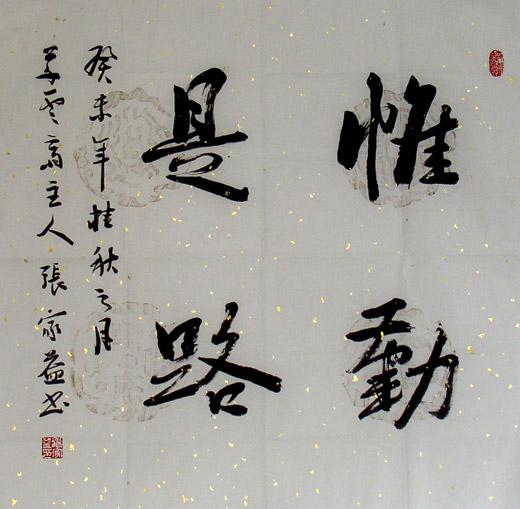 惟勤
是路
癸未年桂秋之月
云斋主人張家益书